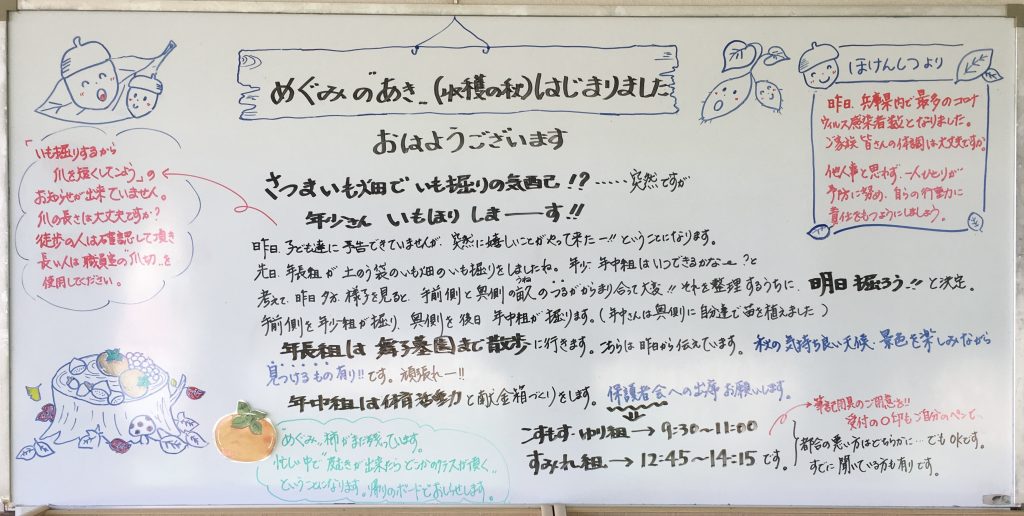 めぐみの"あき"(収穫の秋)はじまりました
おはようございます
さつまいも畑で いも掘りの気配!? ・・・・・突然ですが
年少さん いもほり しまーーす!!
昨日、子ども達に予告できていませんが、突然に嬉しいことがやって来たー!! ということになります。
先日、年長組が土のう袋のいも畑のいも掘りをしましたね。年少・年中組はいつできるかな〜?と
考えて、昨日夕方、様子を見ると、手前側と奥側の畝のつるがからまり合って大変!! それを整理するうちに、明日掘ろう!! と決定。
うね
手前側を年少組が掘り、奥側を後日 年中組が掘ります。(年中さんは奥側に自分達で苗を植えました)
年長組は 舞子墓園まで散歩に行きます。こちらは昨日から伝えています。秋の気持ち良い天候、景色を楽しみながら
見つけるもの有り!!です。頑張れー!!
年中組は体育活動と献金箱づくりをします。保護者会への出席お願いします。
こすもす・ゆり組→9:30~11:00
すみれ組→12:45~14:15です。
筆記用具のご用意を!!
受付の○印もご自分のペンで、
都合の悪い方はどちらかに…でもOKです。
すでに聞いている方も有りです。
「いも掘りするから
爪を短くしてこよう」の
お知らせが出来ていません。
爪の長さは大丈夫ですか?
徒歩の人は確認して頂き
長い人は職員室の"爪切"を
使用してください。
ほけんしつより
昨日、兵庫県内で最多のコロナ
ウィルス感染者数となりました。
ご家族皆さんの体調は大丈夫ですか。
他人事と思わず、一人ひとりが
予防に努め、自らの行動に
責任をもつようにしましょう。
"めぐみ"柿がまだ残っています。
忙しい中で"度が出来たらどこかのクラスが頂く"
ということになります。帰りのボードでお知らせします。